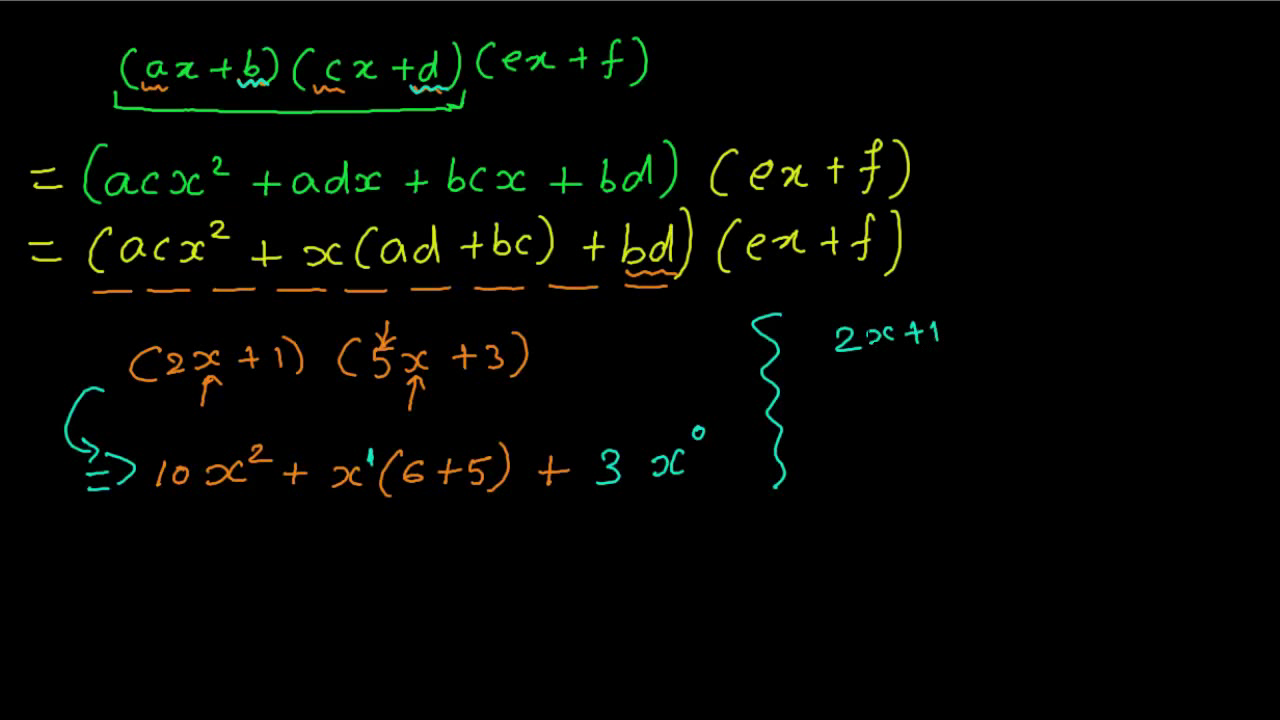 (ax + b) (cx + d) (ex + f)
= (acx² + adx + bcx + bd) (ex + f)
= (acx² + x(ad + bc) + bd) (ex + f)
(2x + 1) (5x + 3)
2x + 1
=> 10x² + x¹(6+5) + 3x⁰